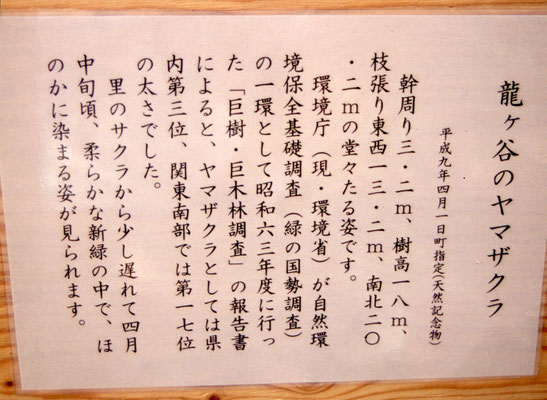 龍ヶ谷のヤマザクラ
平成九年四月一日町指定(天然記念物)
幹周り三・二m、樹高一八m、
枝張り東西一三・二m、南北二〇
・二mの堂々たる姿です。
環境庁（現・環境省）が自然環
境保全基礎調査（緑の国勢調査）
の一環として昭和六三年度に行っ
た「巨樹・巨木林調査」の報告書
によると、ヤマザクラとしては県
内第三位、関東南部では第一七位
の太さでした。
里のサクラから少し遅れて四月
中旬頃、柔らかな新緑の中で、ほ
のかに染まる姿が見られます。